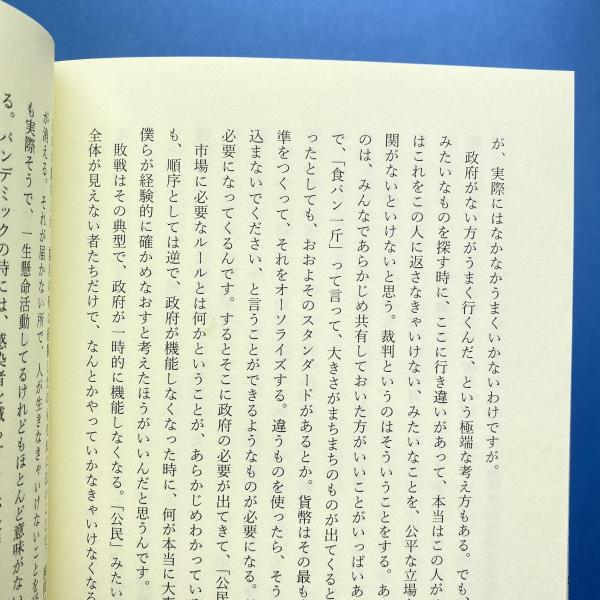 が、実際にはなかなかうまくいかないわけですが。
政府がない方がうまく行くんだ、という極端な考え方もある。でも、
みたいなものを探す時に、ここに行き違いがあって、本当はこの人が
はこれをこの人に返さなきゃいけない、みたいなことを、公平な立場
関がないといけないと思う。裁判というのはそういうことをする。あ
のは、みんなであらかじめ共有しておいた方がいいことがいっぱいあ
で、「食パン一斤」って言って、大きさがまちまちのものが出てくると
ったとしても、おおよそのスタンダードがあるとか。貨幣はその最も
準をつくって、それをオーソライズする。違うものを使ったら、そう
込まないでください、と言うことができるようなものが必要になる。
必要になってくるんです。するとそこに政府の必要が出てきて、「公民
市場に必要なルールとは何かということが、あらかじめわかっている
も、順序としては逆で、政府が機能しなくなった時に、何が本当に大事
僕らが経験的に確かめなおすと考えたほうがいいんだと思うんです。
敗戦はその典型で、政府が一時的に機能しなくなる。「公民」みたい
全体が見えない者たちだけで、なんとかやっていかなきゃいけなくなる
が消える。それが届かない所で、人が生きなきゃいけないことを
も実際そうで、一生懸命活動してるけれどもほとんど意味がない
る。パンデミックの時には、感染者を減